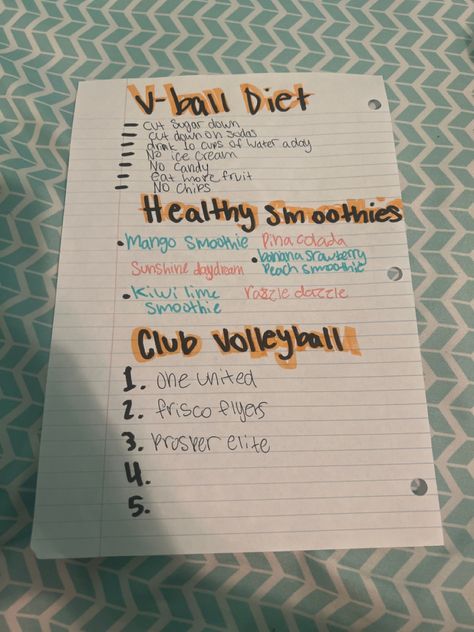 V-ball Diet
- cut sugar down
- cut down on sodas
- drink 10 cups of water a day
- No ice cream
- No candy
- eat more fruit
- No chips
Healthy Smoothies
• Mango smoothie Pina colada
Sunshine daydream • banana srawberry peach smoothie
• Kiwi lime smoothie razzle dazzle
Club Volleyball
1. one united
2. frisco flyers
3. prosper elite
4.
5.